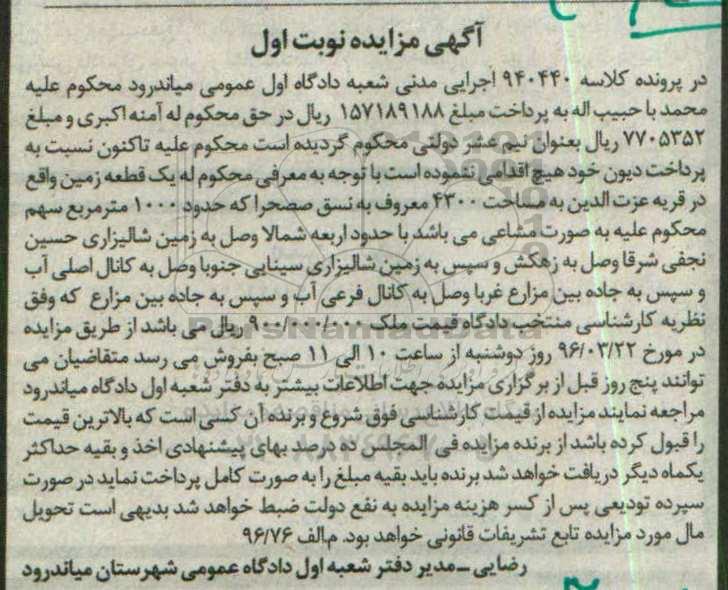 آگهی مزایده نوبت اول
در پرونده کلاسه ۹۴۰۴۴۰ اجرایی مدنی شعبه دادگاه اول عمومی میاندرود محکوم علیه
محمد با حبیب اله به پرداخت مبلغ ۱۵۷۱۸۹۱۸۸ ریال در حق محکوم له آمنه اکبری و مبلغ
۷۷۰۵۳۵۲ ریال بعنوان نیم عشر دولتی محکوم گردیده است محکوم علیه تاکنون نسبت به
پرداخت دیون خود هیچ اقدامی ننموده است با توجه به معرفی محکوم له یک قطعه زمین واقع
در قریه عزت الدین به مساحت ۴۳۰۰ معروف به نسق صصحرا که حدود ۱۰۰۰ مترمربع سهم
محکوم علیه به صورت مشاعی می باشد با حدود اربعه شمالا وصل به زمین شالیزاری حسین
نجفی شرقا وصل به زهکش و سپس به زمین شالیزاری سینایی جنوبا وصل به کانال اصلی آب
و سپس به جاده بین مزارع غربا وصل به کانال فرعی آب و سپس به جاده بین مزارع که وفق
نظریه کارشناسی منتخب دادگاه قیمت ملک ۹۰۰/۰۰۰/۰۰۰ ریال می باشد از طریق مزایده
در مورخ ۹۶/۰۳/۲۲ روز دوشنبه از ساعت ۱۰ الی ۱۱ صبح بفروش می رسد متقاضیان می
توانند پنج روز قبل از برگزاری مزایده جهت اطلاعات بیشتر به دفتر شعبه اول دادگاه میاندرود
مراجعه نمایند مزایده از قیمت کارشناسی فوق شروع و برنده آن کسی است که بالاترین قیمت
را قبول کرده باشد از برنده مزایده فی المجلس ده درصد بهای پیشنهادی اخذ و بقیه حداکثر
یکماه دیگر دریافت خواهد شد برنده باید بقیه مبلغ را به صورت کامل پرداخت نماید در صورت
سپرده تودیعی پس از کسر هزینه مزایده به نفع دولت ضبط خواهد شد بدیهی است تحویل
مال مورد مزایده تابع تشریفات قانونی خواهد بود. م.الف ۹۶/۷۶
رضایی – مدیر دفتر شعبه اول دادگاه عمومی شهرستان میاندرود
ParsNamadData